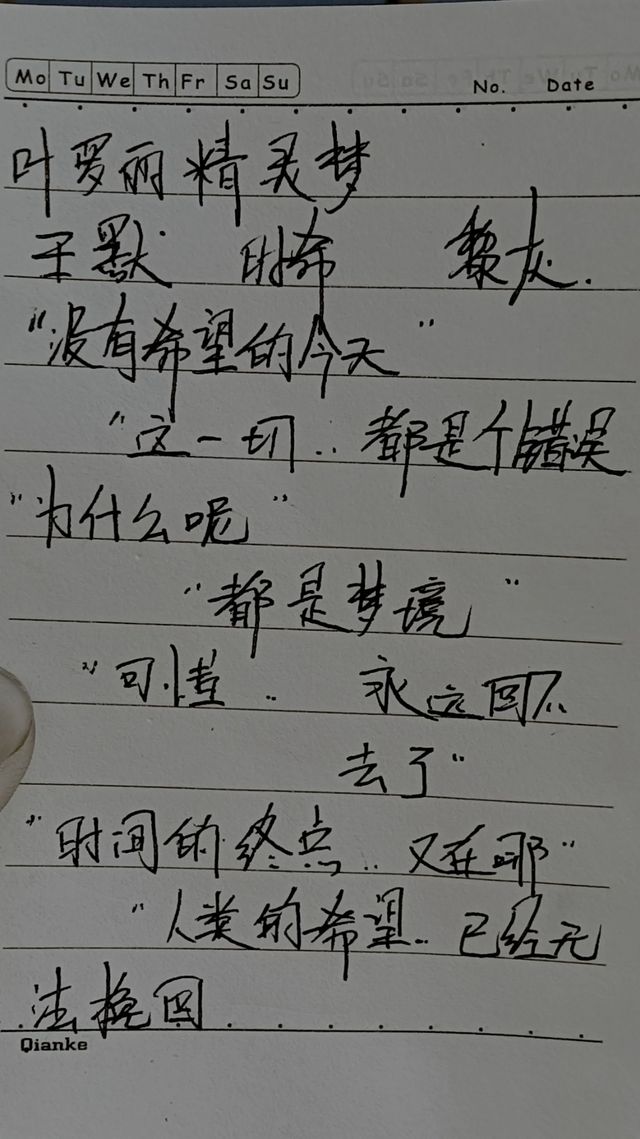 Mo Tu We Th Fr Sa Su No. Date
叶罗丽精灵梦
王默 时希 黎灰.
"没有希望的今天"
"这一切.. 都是个错误
"为什么呢"
"都是梦境"
"可惜.. 永远回不
去了"
"时间的终点.. 又在哪"
"人类的希望.. 已经无
法挽回
Qianke